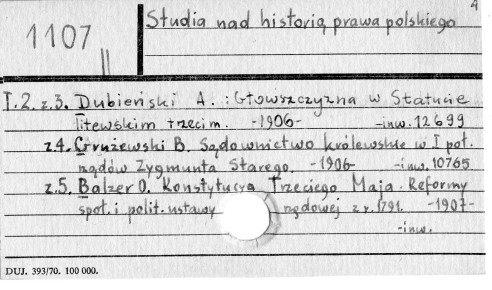 4
1107
||
Studia nad historią prawa polskiego
T.2. z.3. Dubieński A. : Głowszczyzna w Statucie
litewskim trzecim. -1906- -inw. 12699
z.4. Grużewski B. Sądownictwo królewskie w I poł.
rządów Zygmunta Starego. -1906- -inw. 10765
z.5. Balzer O. Konstytucya Trzeciego Maja. Reformy
społ. i polit. ustawy rządowej z r. 1791. -1907-
-inw.
DUJ. 393/70. 100 000.